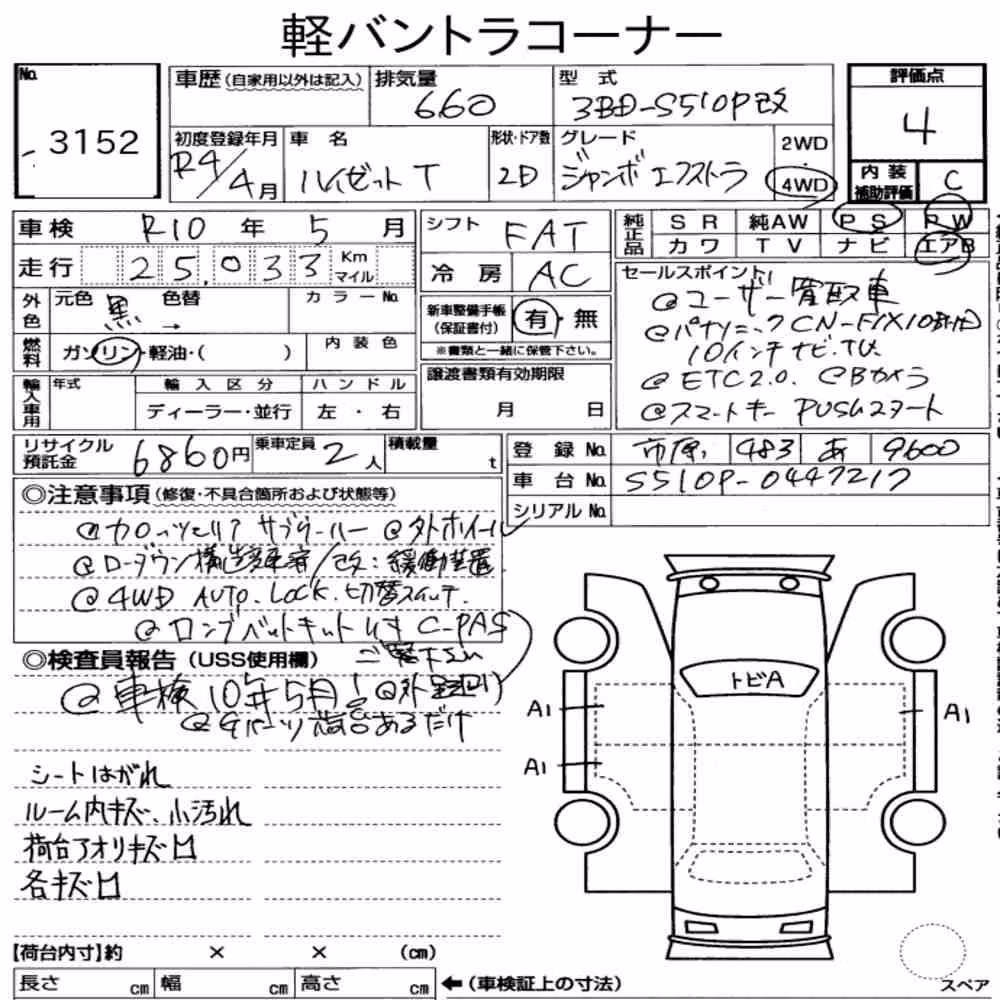 軽バントラコーナー
No. 3152
車歴 (自家用以外は記入)
排気量 660
型式 3BD-S510P改
評価点 4
初度登録年月 R4/4月
車名 ハイゼットT
形状・ドア数 2D
グレード ジャンボエクストラ
2WD
4WD
内装補助評価 C
車検 R10年 5月
シフト FAT
純正品 SR 純AW PS PW
カワ TV ナビ エアB
走行 25,033 Km マイル
冷房 AC
セールスポイント
@ユーザー買取車
外色 元色 黒 → 色替 カラーNo.
新車整備手帳(保証書付) 有・無
※書類と一緒に保管下さい。
@パナソニックCN-F1X10
10インチナビ.TV.
燃料 ガソリン・軽油・( ) 内装色
譲渡書類有効期限
月 日
@ETC2.0. @Bカメラ
@スマートキー PUSHスタート
輸入車用 年式 輸入区分 ハンドル
ディーラー・並行 左・右
リサイクル預託金 6860円
乗車定員 2人
積載量 t
登録No. 市原 483 あ 9600
車台No. S510P-0447217
シリアルNo.
◎注意事項(修復・不具合箇所および状態等)
@カロッツェリア サブウーハー @外ホイール
@ローダウン構造変更済/改:緩衝装置
@4WD AUTO.LOCK.切替スイッチ.
C-PAS
ご覧下さい
◎検査員報告(USS使用欄)
@車検10年5月!
荷台あるだけ
シートはがれ
ルーム内キズ、小汚れ
荷台アオリキズ凹
各キズ凹
トビA
A1
A1
A1
【荷台内寸】約 × × (cm)
長さ cm 幅 cm 高さ cm ←(車検証上の寸法)
スペア